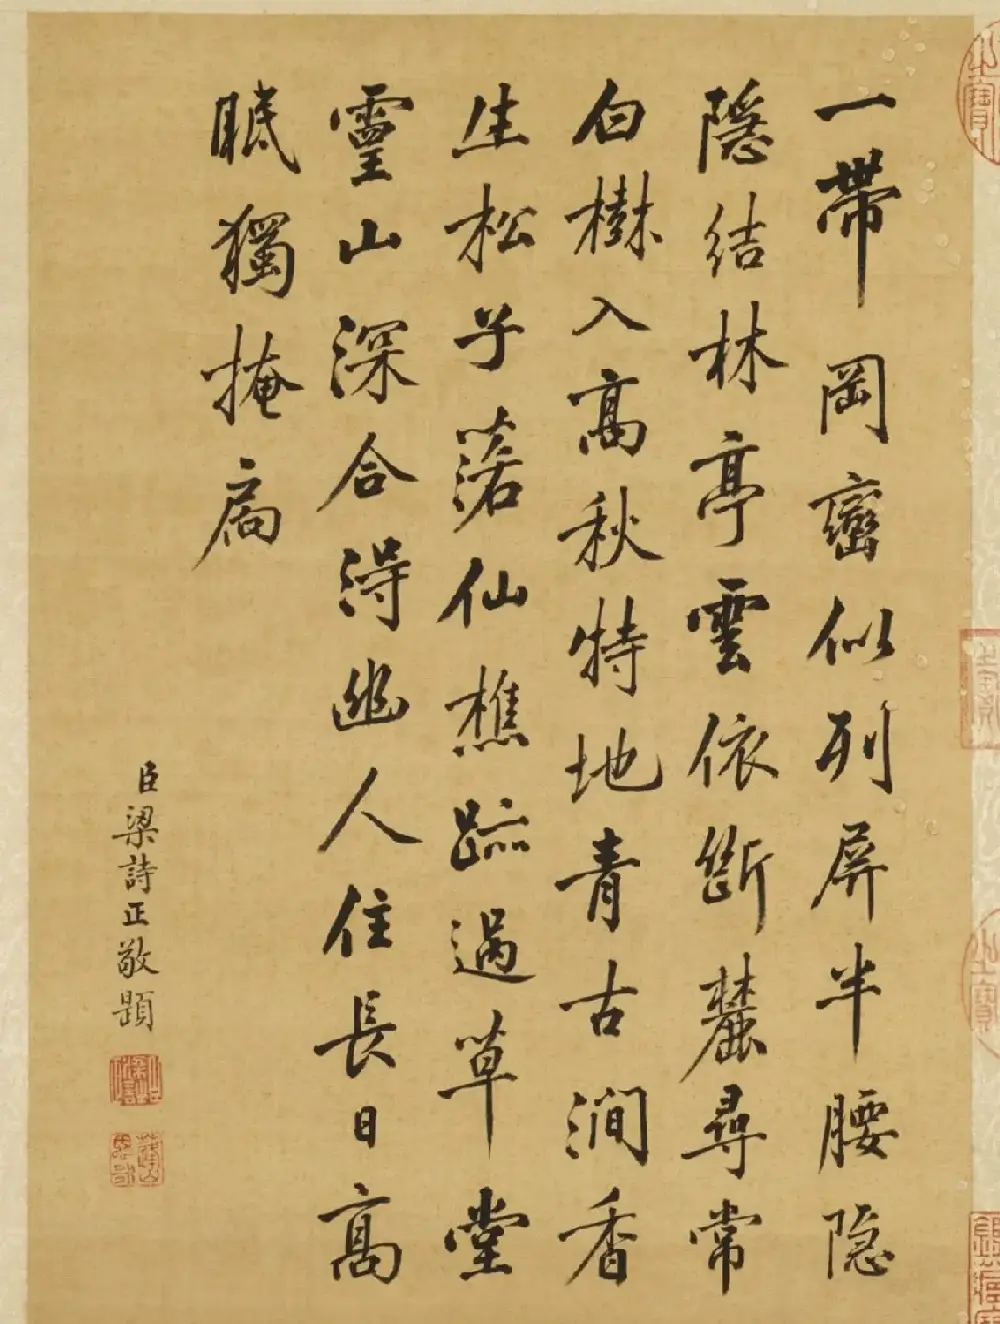 一帶岡巒似列屏半腰隐
隱結林亭雲依斷麓尋常
白樹入高秋特地青古澗香
生松子落仙樵跡過草堂
靈山深合得幽人住長日高
眠獨掩扃
臣梁詩正敬題